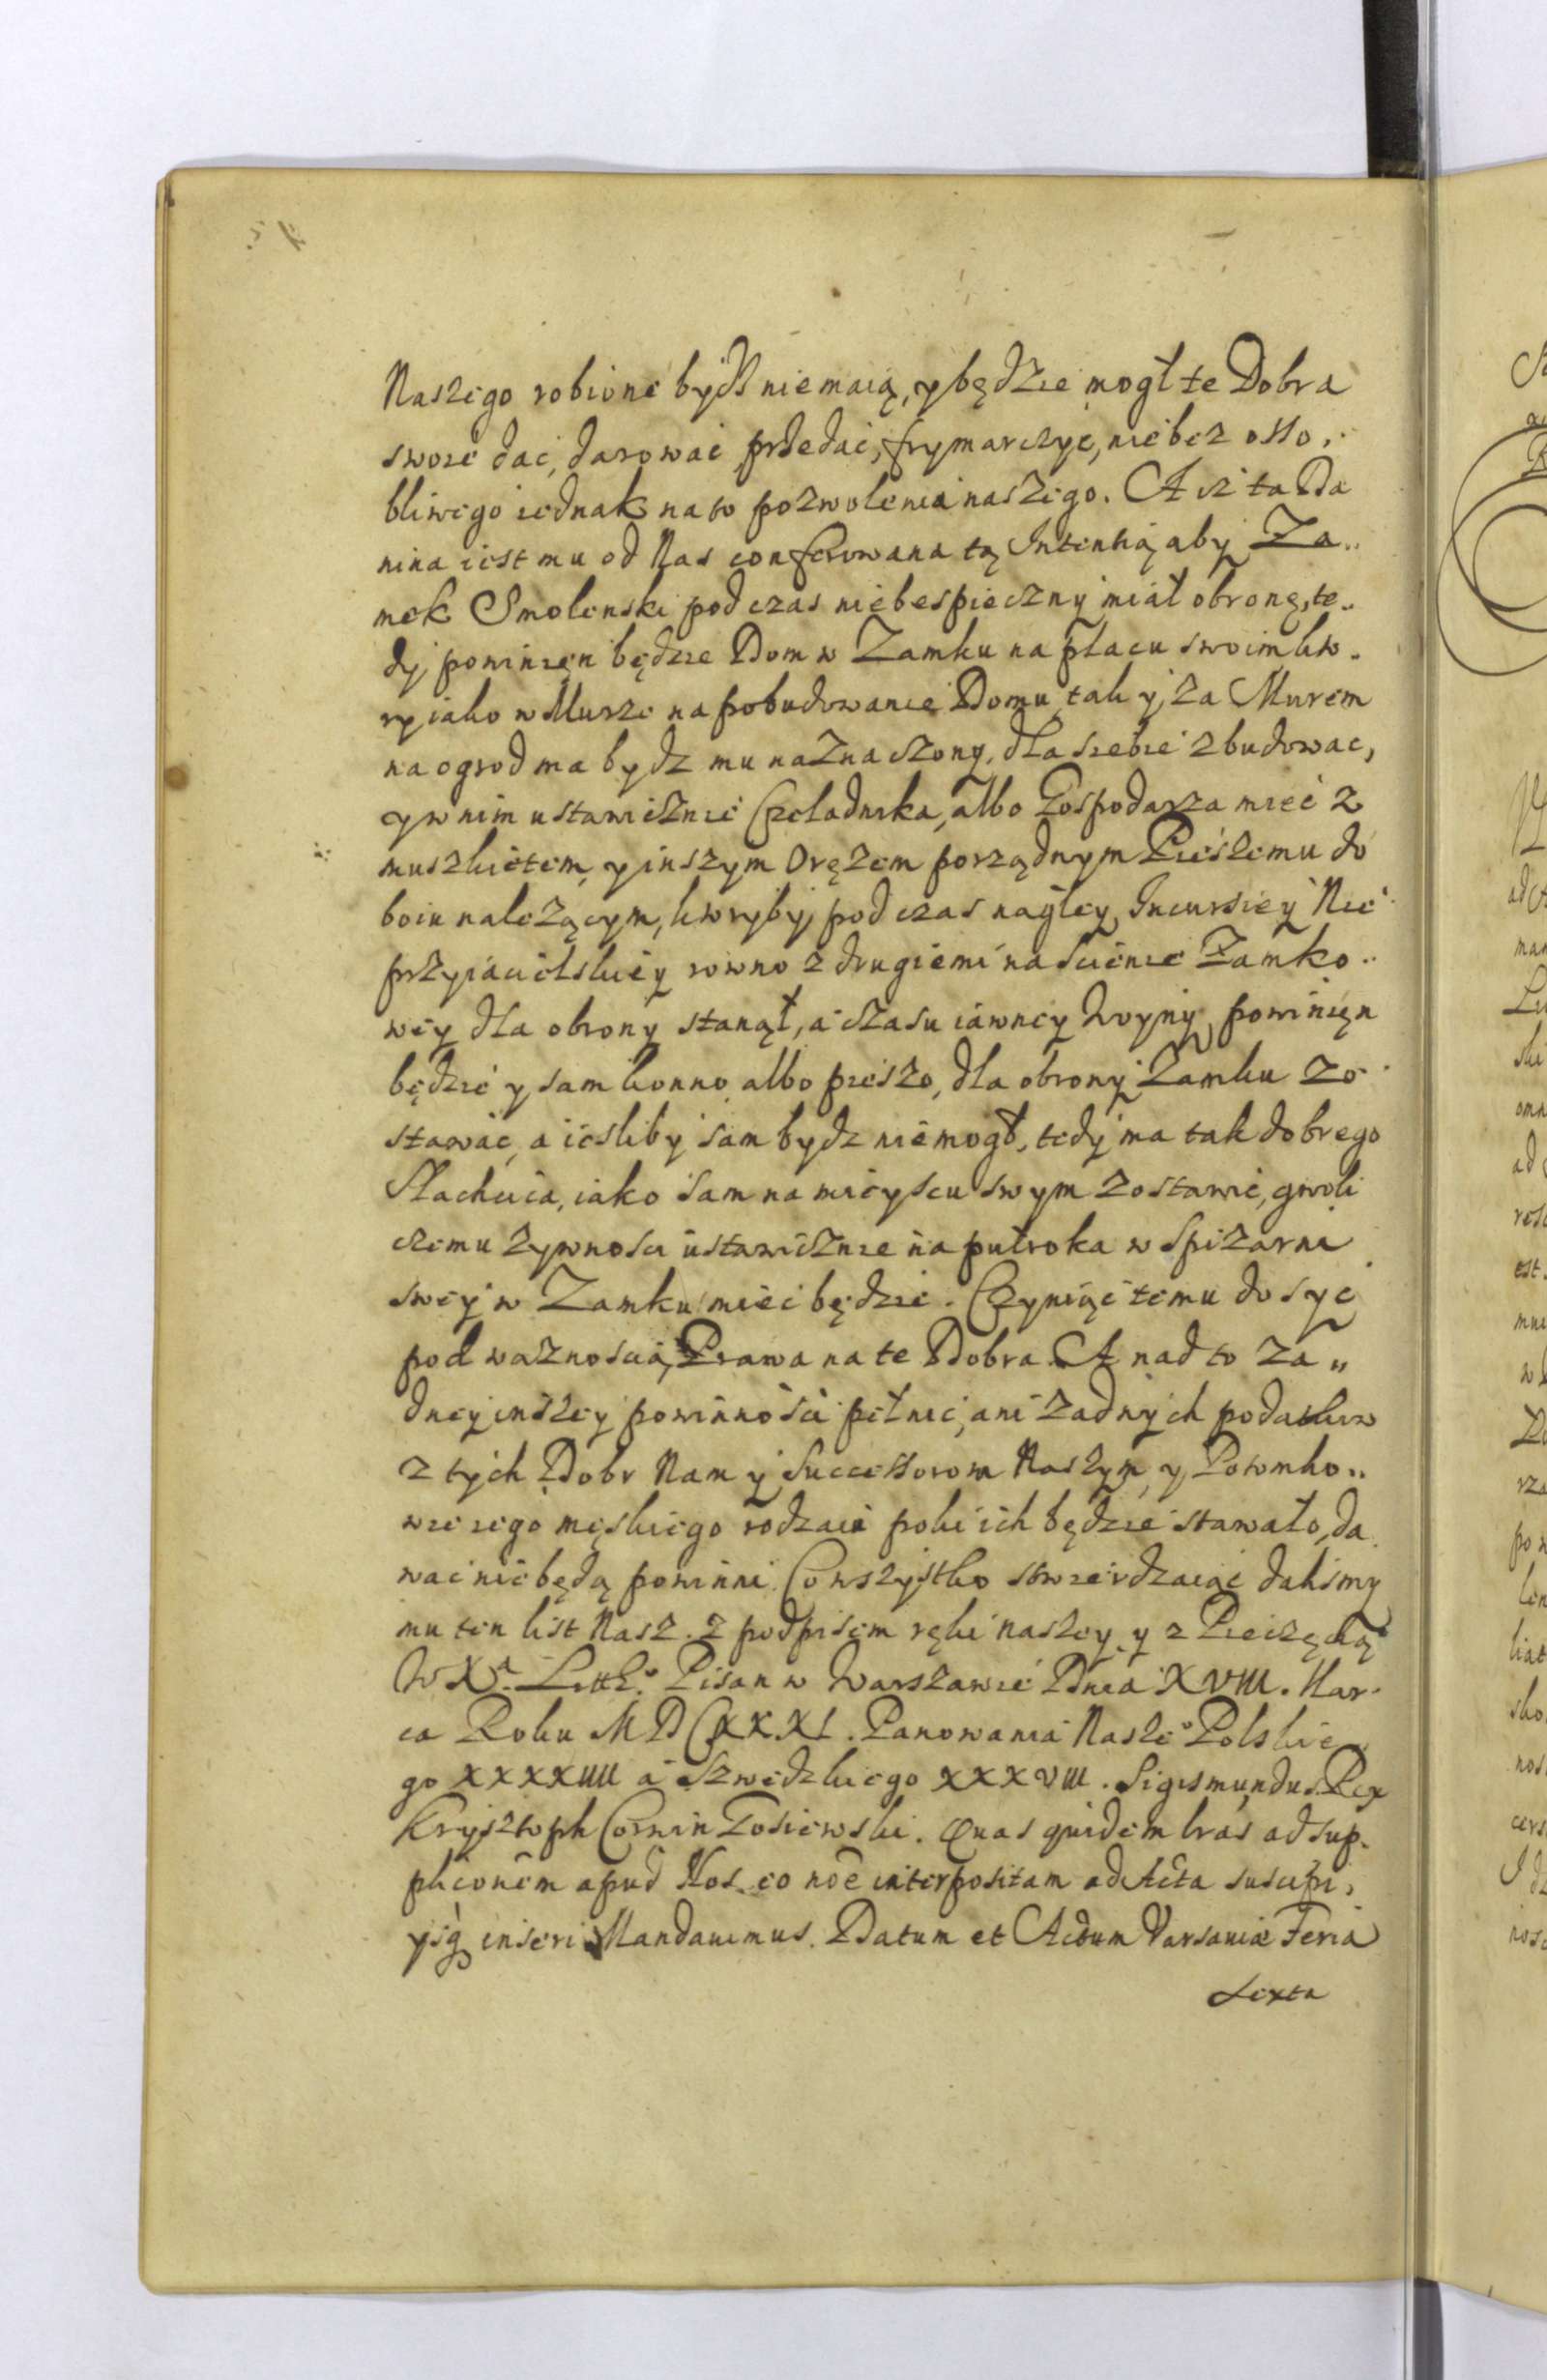 Naszego robione bydź nie maią, y będzie mogł te Dobra
swoie dać, darować przedać, frymarczyć, nie bez osso,
bliwego iednak na to pozwolenia naszego. A iż ta Da
nina iest mu od Nas conferowana tą Intentią aby Za„
mek Smolenski pod czas niebespieczny miał obronę, te„
dy powinien będzie Dom w Zamku na placu swoim kto„
ry iako w Murze na pobudowanie Domu, tak y za Murem
na ogrod ma bydz mu naznaczony, dla siebie zbudowac,
y w nim ustawicznie Czeladnika, albo Gospodarza mieć z
muszkietem, y inszym Orężem porządnym Pieszemu do
boiu należącym, ktoryby pod czas nagłey Incursiey Nie
przyiacielskiey rowno z drugiemi na scienie Zamko„
wey dla obrony stanął, a czasu iawney Woyny, powinien
będzie y sam konno albo pieszo, dla obrony Zamku Zo
stawac, a iesliby sam bydz niemogł, tedy ma tak dobrego
Slachcica, iako sam na mieyscu swym zostawić, gwoli
czemu żywnosci ustawicznie na puł roka w Spizarni
swey w Zamku mieć będzie. Czyniąc temu dosyc
pod waznoscią Prawa na te Dobra. A nad to Za„
dney inszey powinności pełnić, ani żadnych podatkow
z tych Dobr Nam y Successorom Naszym, y Potomko„
wie iego męskiego rodzaiu poki ich będzie stawało, da
wać nie będą powinni. Co wszystko stwierdzaiąc daliśmy
mu ten list Nasz. z podpisem ręki naszey y z Pieczęcią
W X.ª Litt.º Pisan w Warszawie Dnia XVIII. Mar„
ca Roku MDCXXXI. Panowania Nasze.º Polskie„
go XXXXIIII a Szwedzkiego XXXVIII. Sigismundus Rex
Krysztoph Corvin Gosiewski. Quas quidem lras ad sup„
plicōnem apud Nos eo nōe interpositam ad Acta suscipi,
ysq́ inseri Mandavimus. Datum et Actum Varsaviæ Feria
Sexta